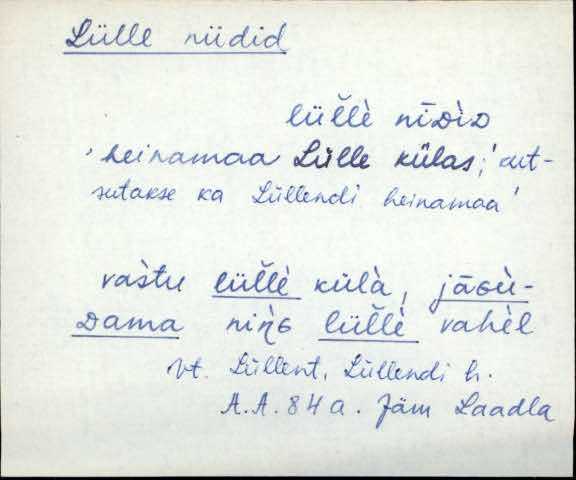 Lülle niidid
lüľ̆l̀è nīᴅìᴅ
'heinamaa Lülle külas;' kut-
sutakse ka Lüllendi heinamaa'
vastu lüľ̆l̀è külà, jāɢù-
ᴅama niŋ̀ɢ lüľ̆l̀è vahèl
vt. Lüllent, Lüllendi h.
A.A. 84 a. Jäm Laadla